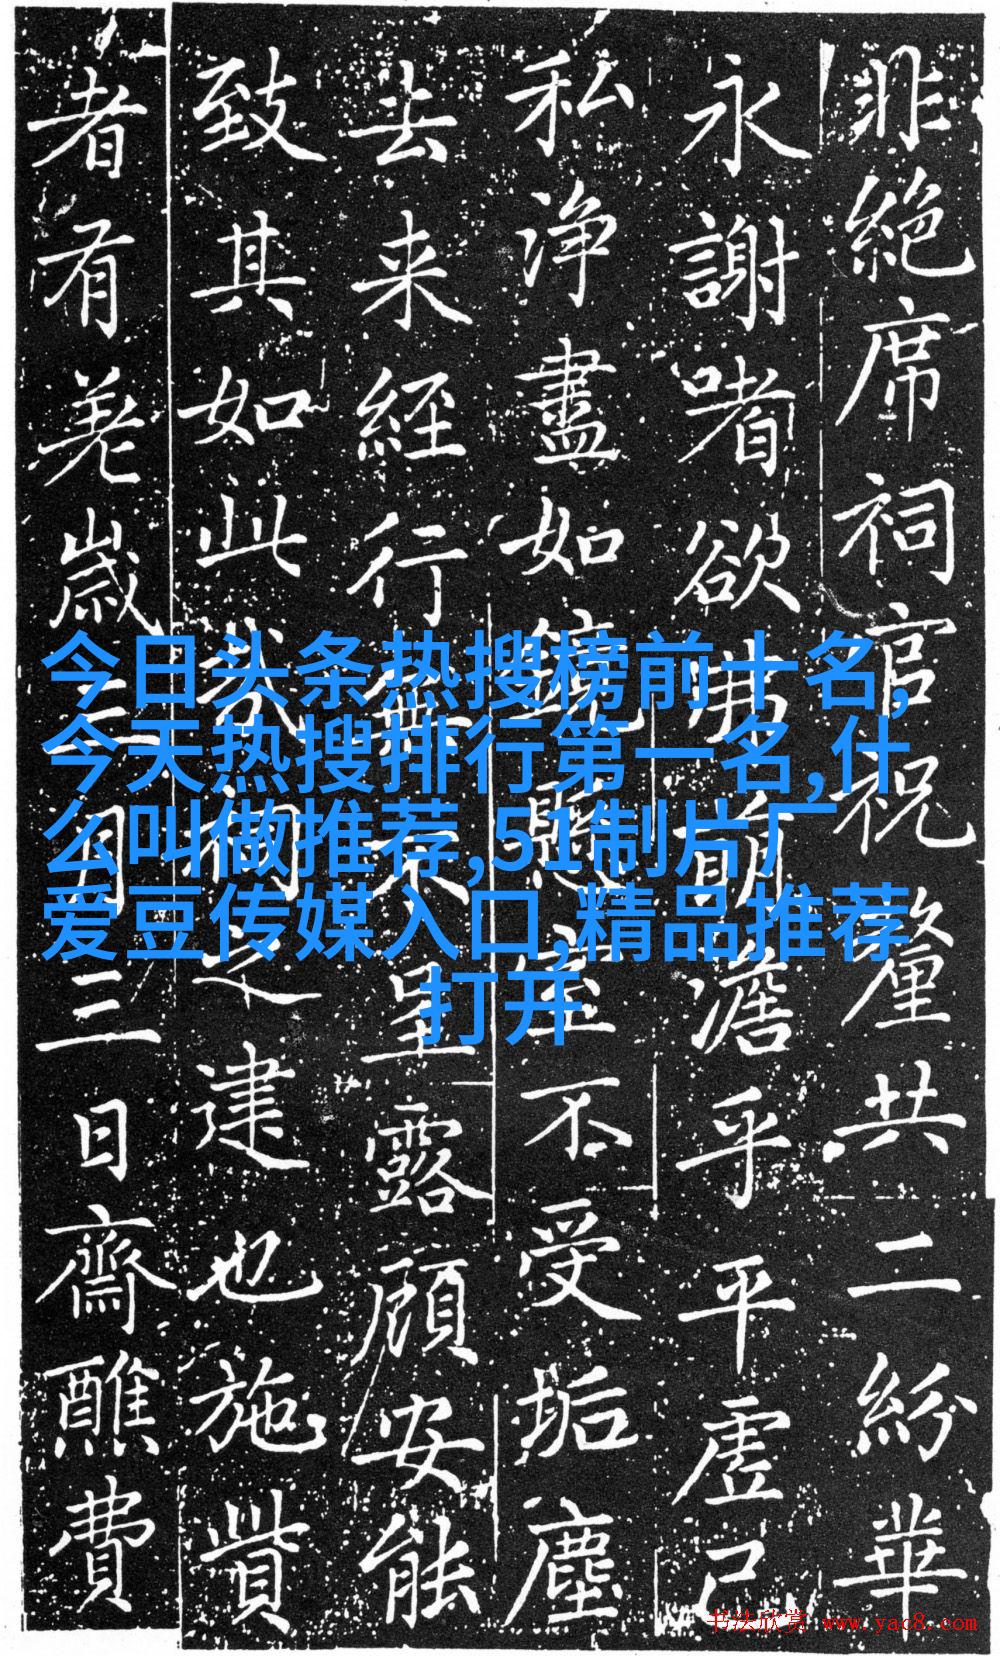 非絶席祠官祝釐共二紛華
永謝嗜欲萌澹乎平虗己
私浄盡如鏡不受垢塵
去来経行無不露顧安能
致其如此祠之建也施貲
者有羌歳三月三日齋醮費
今日头条热搜榜前十名,
今天热搜排行第一名,什
么叫做推荐,51制片厂
爱豆传媒入口,精品推荐
打开
书法欣赏 www.yac8.com